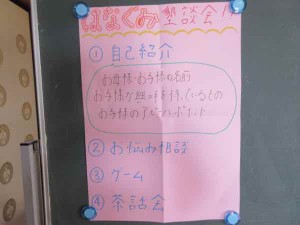 はなぐみ 懇談会!!
① 自己紹介
お母様・お子様の名前
お子様が興味を持っているもの
お子様のアピールポイント
② お悩み相談
③ ゲーム
④ 茶話会